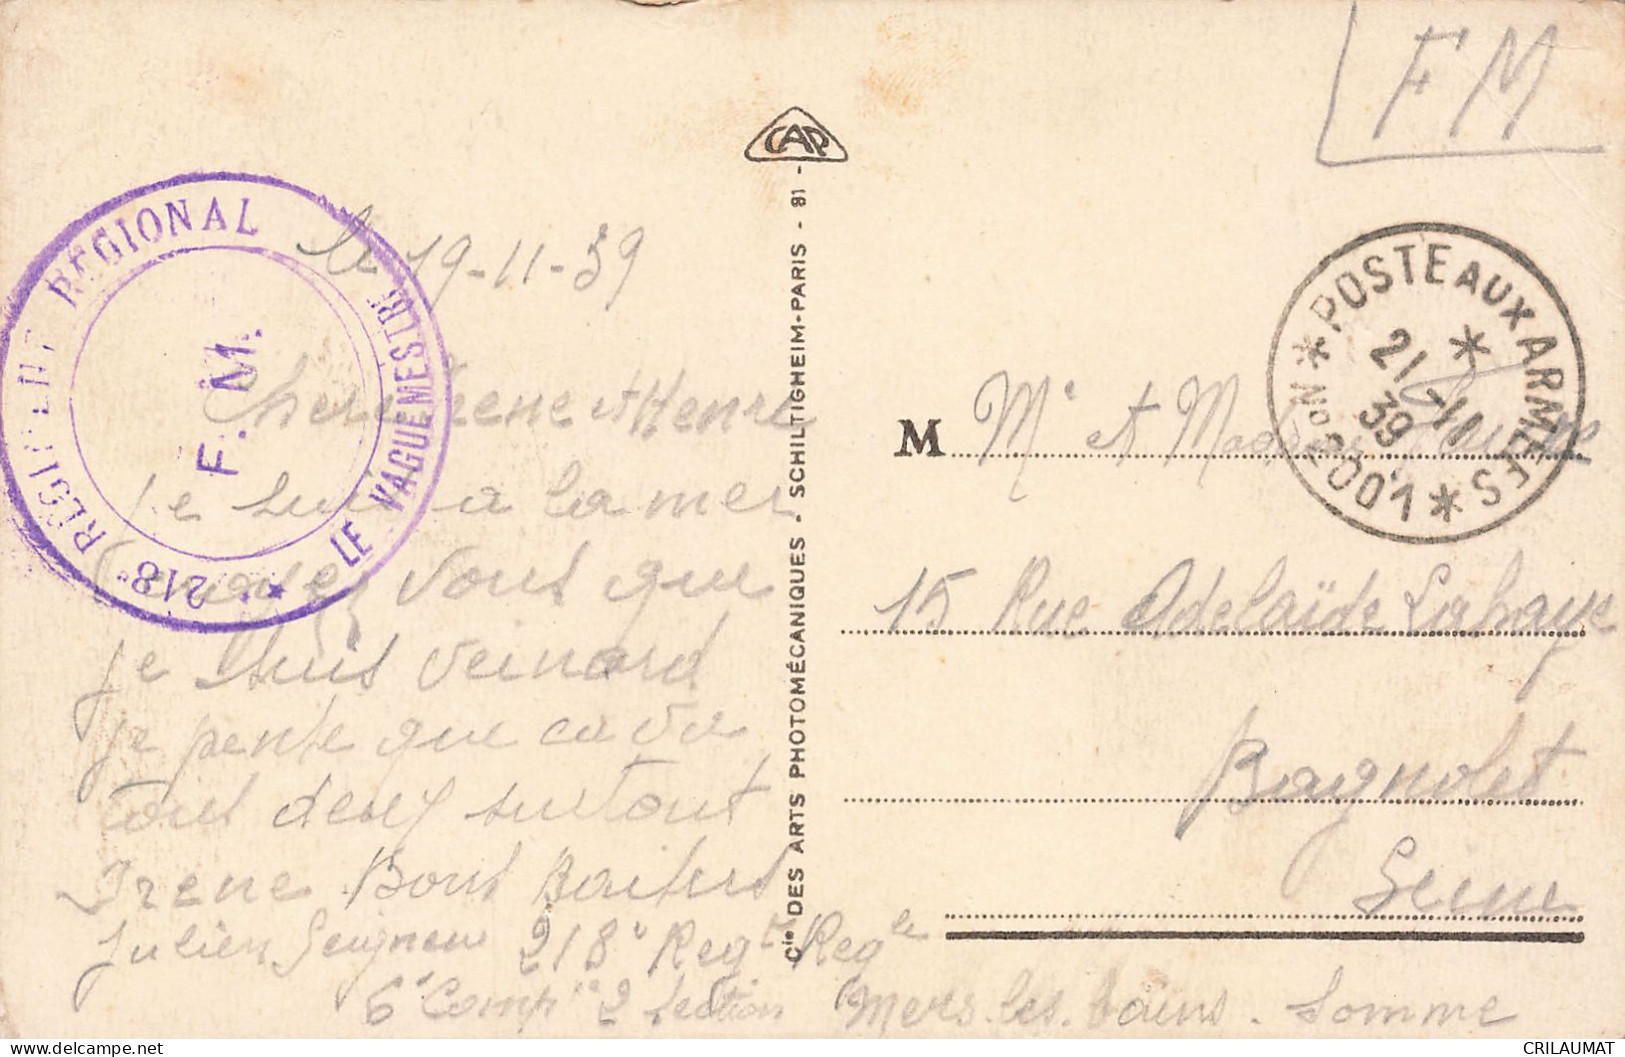 F M
CAP
218e REGIMENT REGIONAL
* LE VAGUEMESTRE
F. M.
le 19-11-39
Chere Irene et Henri
Je suis a la mer
vous que
je suis veinard
je pente que ca va
tout deux surtout
Irene Bons Baisers
Julien Seigneur 218e Regt Regle
6e Compie 2 section Mers.les.bains. Somme
Cie DES ARTS PHOTOMÉCANIQUES - SCHILTIGHEIM-PARIS - 81 -
* POSTE AUX ARMEES *
21-11
39
No 2001
M Mr et Madame
15 Rue Adelaïde Lahaye
Bagnolet
Seine
CRILAUMAT